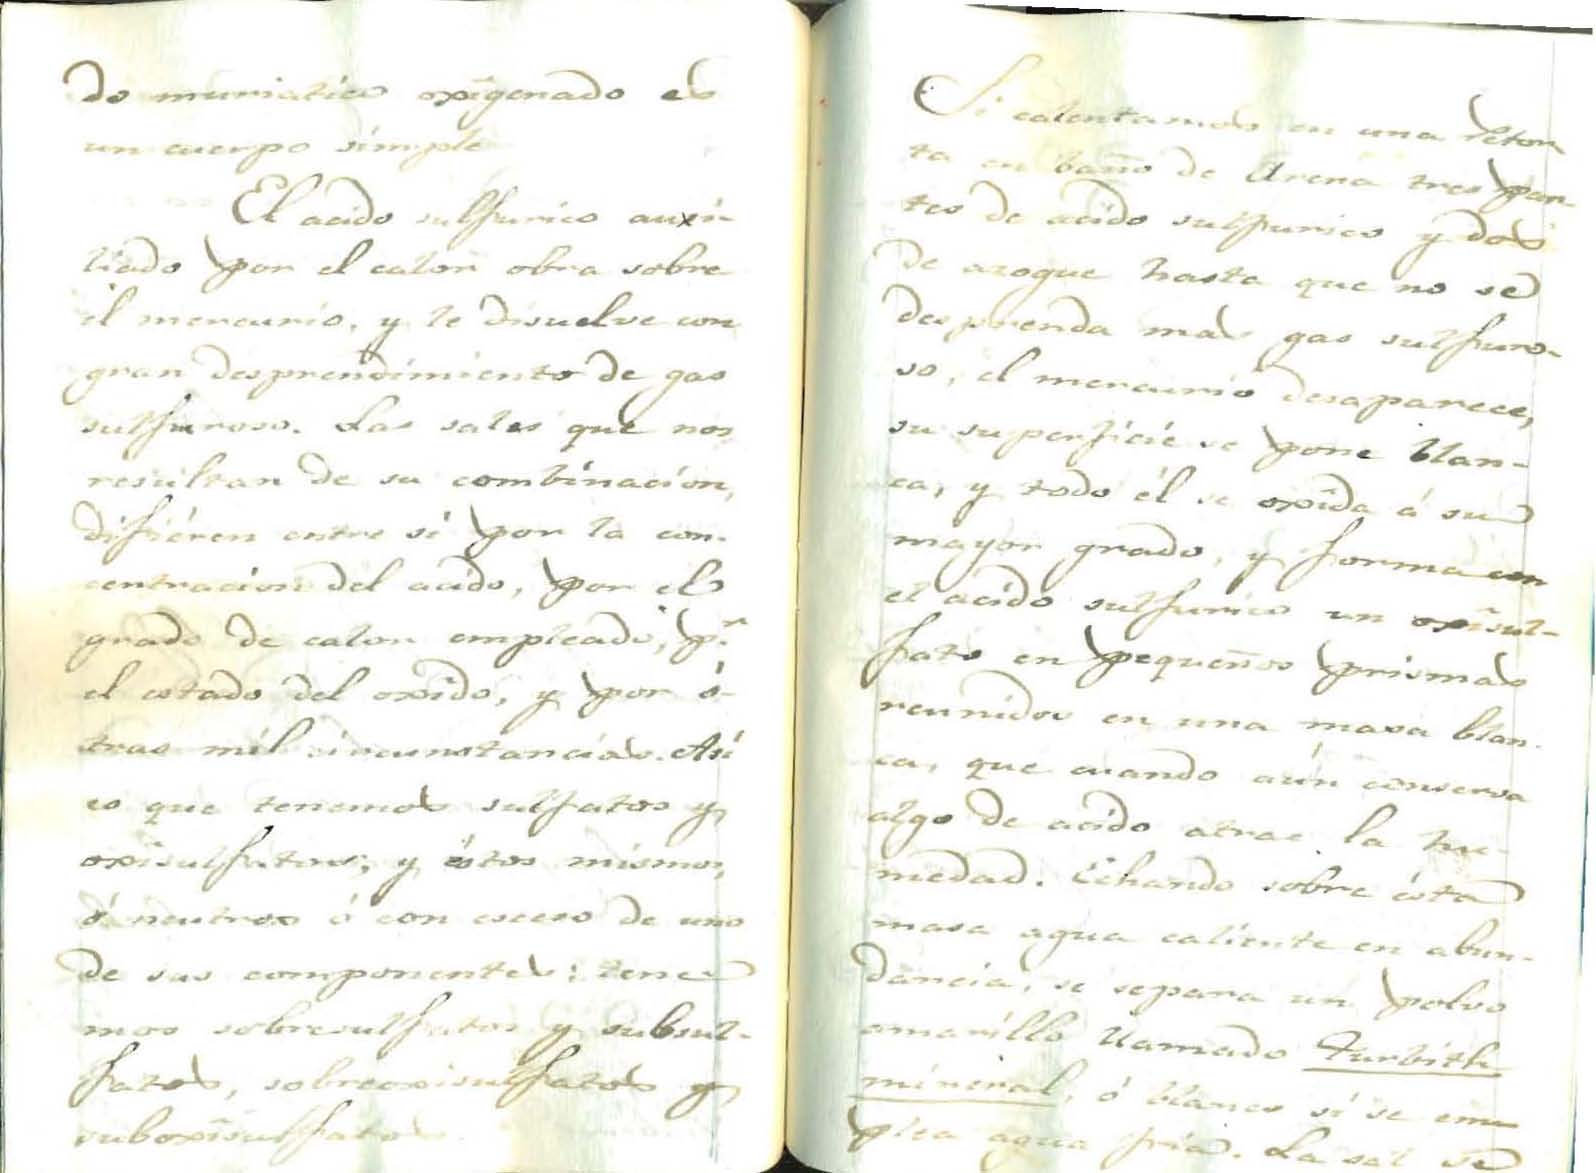 do muriatico oxîgenado es
un cuerpo simple
El acido sulfurico auxi-
liado por el calor obra sobre
el mercurio, y le disuelve con
gran desprendimiento de gas
sulfuroso. Las sales que nos
resultan de su combinacion,
difiéren entre sí por la con-
centracion del acido, por el
grado de calor empleado, p.r
el estado del oxido, y por ó-
tras mil circunstancias. Asi
es que tenemos sulfatos y
oxîsulfatos; y éstos mismos,
ó neutros ó con esceso de uno
de sus componentes: tene
mos sobresulfatos y subsul-
fatos, sobreoxisulfatos y
suboxîsulfatos.
Si calentamos en una retor
ta en baño de Arena tres par
tes de acido sulfurico y dos
de azogue hasta que no se
desprenda mas gas sulfuro-
so, el mercurio desaparece,
su superficie se pone blan-
ca, y todo él se oxîda á su
mayor grado, y forma con
el acido sulfurico un oxîsul-
fato en pequeños prismas
reunidos en una masa blan-
ca, que cuando aún conserva
algo de acido atrae la hu-
medad. Echando sobre ésta
masa agua caliente en abun-
dancia, se separa un polvo
amarillo llamado Turbith
mineral, ó blanco si se em
plea agua fria. La sal se